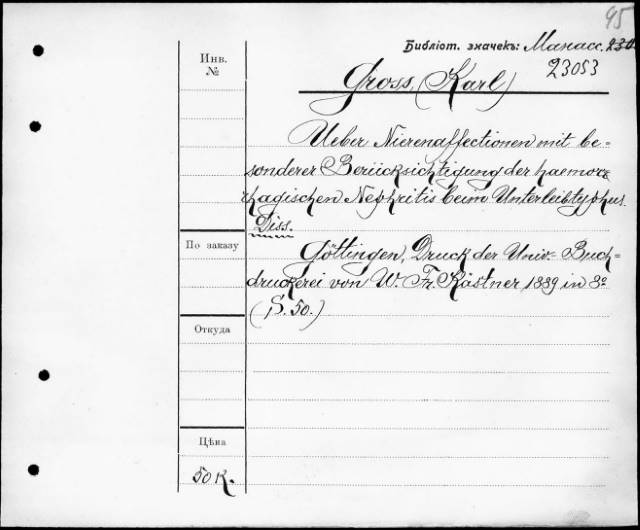 95
Библіот. значекъ: Манасс. 230
23053
Инв.
№
Gross, (Karl)
Ueber Nierenaffectionen mit be-
sonderer Berücksichtigung der haemorr-
hagischen Nephritis beim Unterleibtyphus.
Diss.
По заказу
Göttingen, Druck der Univ.- Buch-
druckerei von W. Fr. Kästner, 1889, in 8º
(S. 50.)
Откуда
Цѣна
50 K.